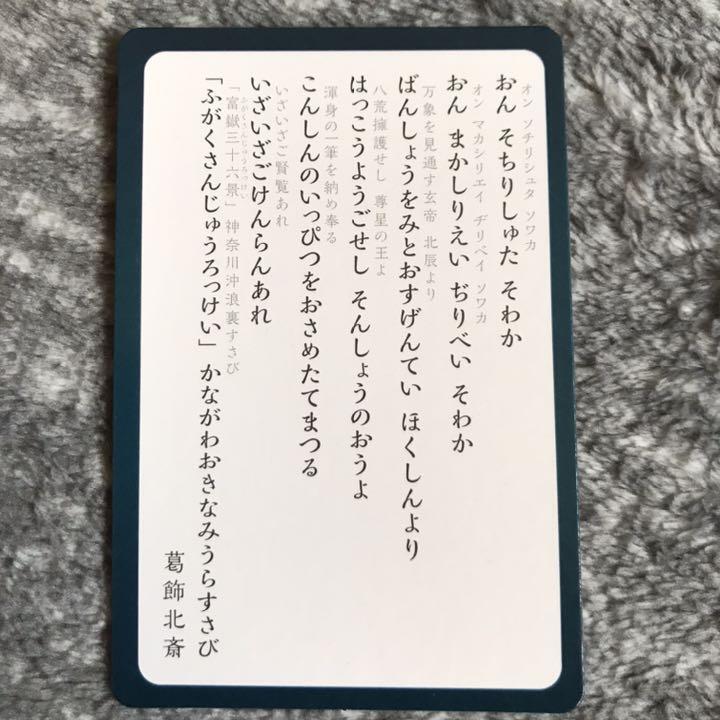 オン ソチリシュタ ソワカ
おん そちりしゅた そわか
オン マカシリエイ ヂリベイ ソワカ
おん まかしりえい ぢりべい そわか
万象を見通す玄帝 北辰より
ばんしょうをみとおすげんてい ほくしんより
八荒擁護せし 尊星の王よ
はっこうようごせし そんしょうのおうよ
渾身の一筆を納め奉る
こんしんのいっぴつをおさめたてまつる
いざいざご賢覧あれ
いざいざごけんらんあれ
ふがくさんじゅうろっけい
「富嶽三十六景」神奈川沖浪裏すさび
「ふがくさんじゅうろっけい」かながわおきなみうらすさび
葛飾北斎